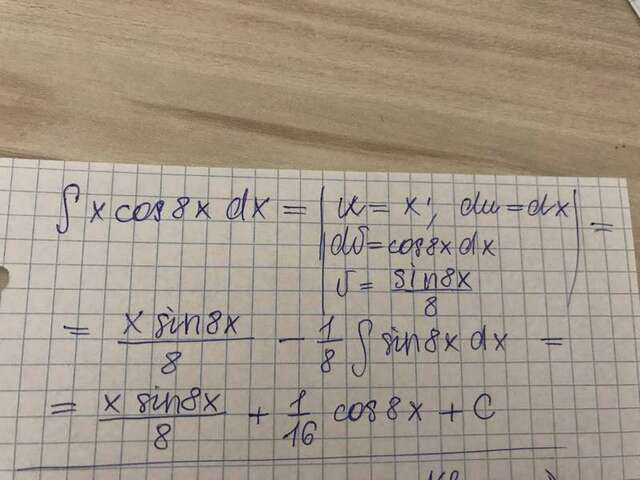 ∫ x cos 8x dx = | u = x; du = dx | =
| dv = cos 8x dx
| v = sin 8x / 8
= x sin 8x / 8 − 1/8 ∫ sin 8x dx =
= x sin 8x / 8 + 1/16 cos 8x + C